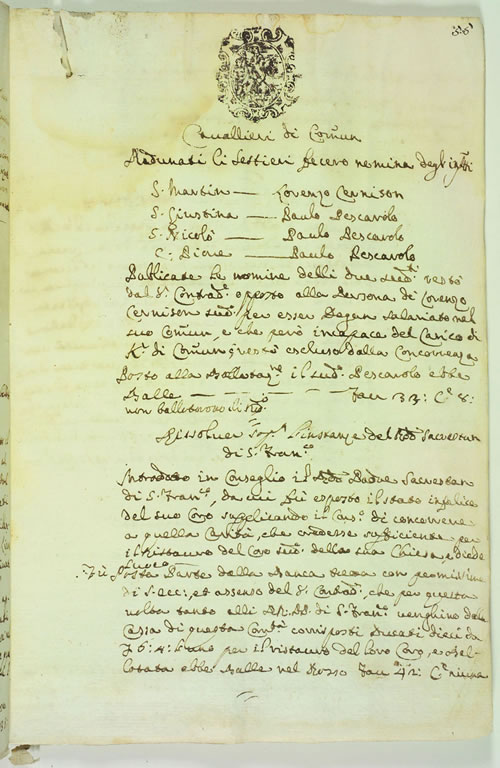 Cavallieri di Comũn
Radunati li Sestieri fecero nomina degl'infrti
S. Martin — Lorenzo Cernison
S. Giustina — Paulo Pescarolo
S. Nicolò — Paulo Pescarolo
C. Dione — Paulo Pescarolo
Publicate le nomine delli due sudti restò
dal Sr Contrade opposto alla Persona di Lorenzo
Cernison sude per esser Degan salariato nel
suo Comũn, e che però incapace del Carico di
Kr di Comũn, restò escluso dalla Concorrenza
Posto alla Ballottaone il sude Pescarolo ebbe
Balle — Fau 33: Ce 8:
non ballottorono li sudi
Rissolver sopa l'instanze del Rdo Sacrestan
di S. Franco
Introdotto in Conseglio il Rdo Padre Sacrestan
di S. Franco, da cui fù esposto il stato infelice
del suo Coro supplicando il Conso di concorrere
a quella Carità, che credesse sufficiente per
il ristauro del Coro sude della sua Chiesa, e diede
luoco
Fù posta Parte della Banca con permissione
di S. Ecc: et assenso del Sr Contrade, che per questa
volta tanto alli RR. PP. di S. Franco venghino dalla
Cassa di questa Contà corrisposti Ducati dieci da
£ 6: 4: l'uno per il ristauro del loro Coro, e Bal-
lottata ebbe Balle nel Rosso Fau 42: Ce niuna